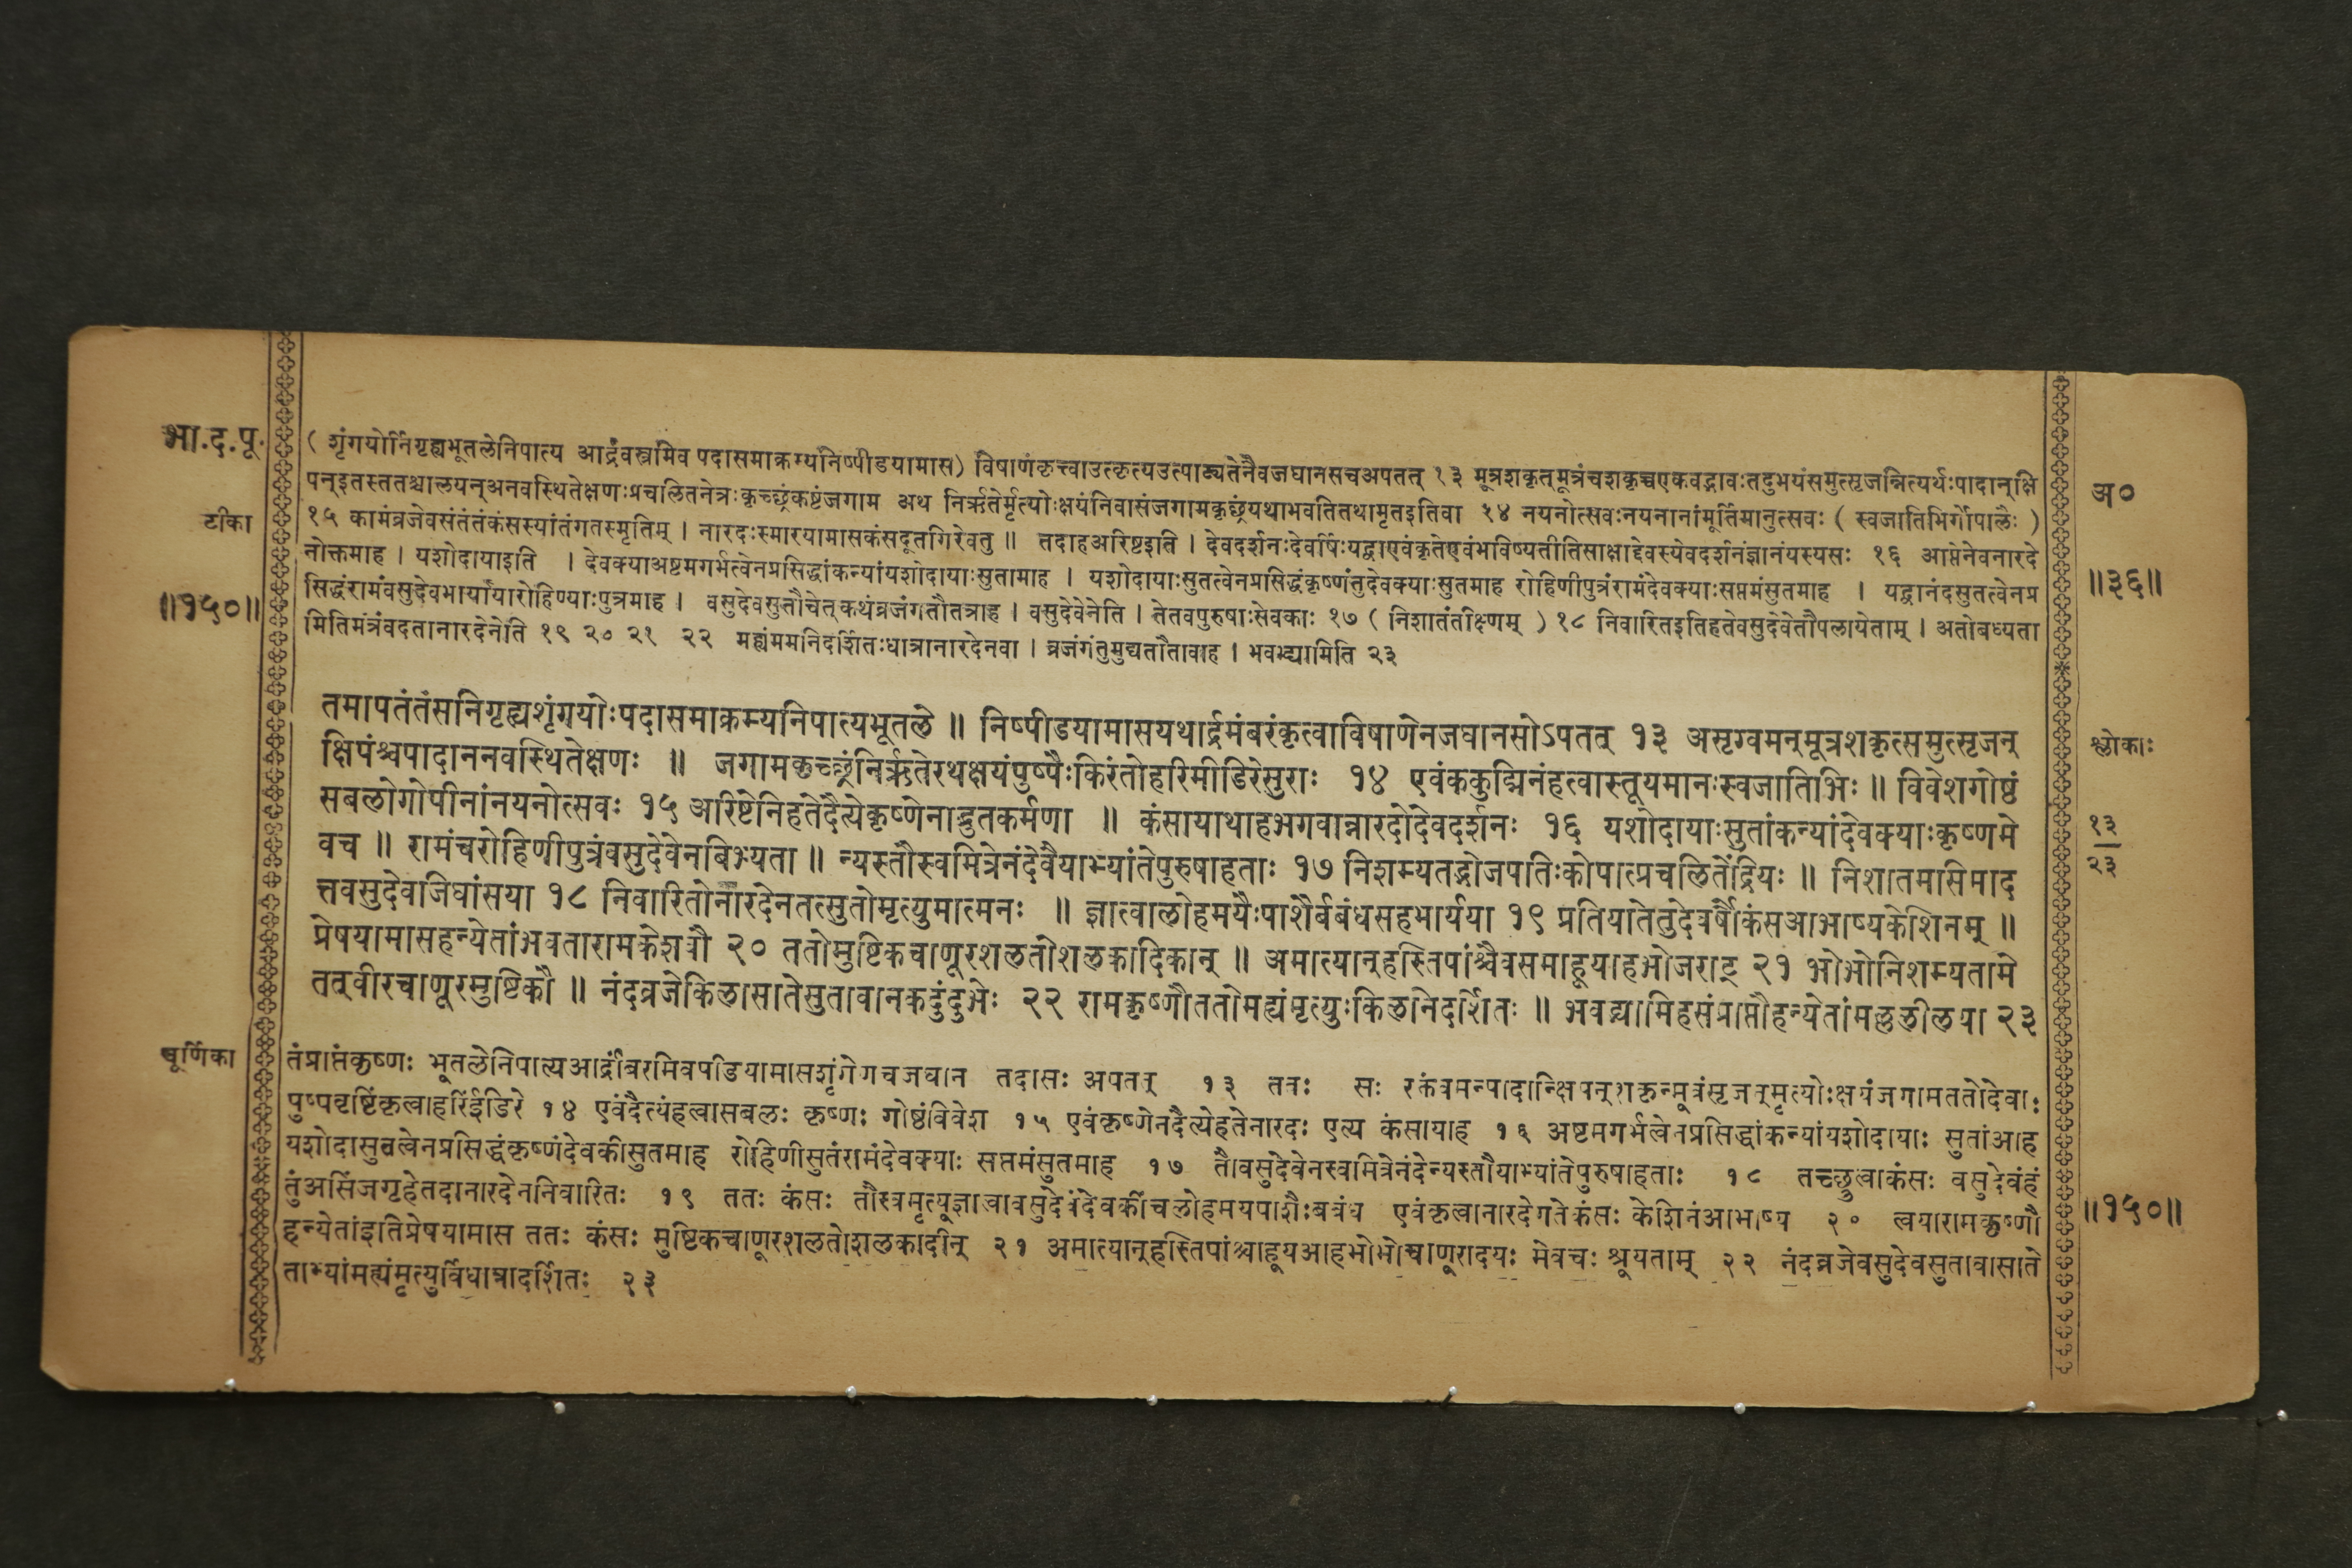 भा.द.पू.
( शृंगयोर्निगृह्यभूतलेनिपात्य आर्द्रंवस्त्रमिव पदासमाक्रम्यनिष्पीडयामास) विषाणंकृत्त्वाउत्कृत्यउत्पाट्यतेनैवजघानसचअपतत् १३ मूत्रशकृत्मूत्रंचशकृच्चएकवद्भावःतदुभयंसमुत्सृजन्नित्यर्थःपादान्क्षि
पन्इतस्ततश्चालयन्अनवस्थितेक्षणःप्रचलितनेत्रःकृच्छ्रंकष्टंजगाम अथ निर्ऋतेर्मृत्योःक्षयंनिवासंजगामकृछ्रंयथाभवतितथामृतइतिवा १४ नयनोत्सवःनयनानांमूर्तिमानुत्सवः ( स्वजातिभिर्गोपालैः )
अ०
टीका
१५ कामंव्रजेवसंतंतंकंसस्यांतंगतस्मृतिम् । नारदःस्मारयामासकंसदूतगिरेवतु ॥ तदाहअरिष्टइति । देवदर्शनःदेवर्षिःयद्वाएवंकृतेएवंभविष्यतीतिसाक्षाद्देवस्येवदर्शनंज्ञानंयस्यसः १६ आप्तेनेवनारदे
नोक्तमाह । यशोदायाइति । देवक्याअष्टमगर्भत्वेनप्रसिद्धांकन्यांयशोदायाःसुतामाह । यशोदायाःसुतत्वेनप्रसिद्धंकृष्णंतुदेवक्याःसुतमाह रोहिणीपुत्रंरामंदेवक्याःसप्तमंसुतमाह । यद्वानंदसुतत्वेनप्र
॥३६॥
॥१५०॥
सिद्धंरामंवसुदेवभार्यायारोहिण्याःपुत्रमाह । वसुदेवसुतौचेत्कथंव्रजंगतौतत्राह । वसुदेवेनेति । तेतवपुरुषाःसेवकाः १७ ( निशातंतीक्ष्णम् ) १८ निवारितइतिहतेवसुदेवेतौपलायेताम् । अतोबध्यता
मितिमंत्रंवदतानारदेनेति १९ २० २१ २२ मह्यंममनिदर्शितःधात्रानारदेनवा । व्रजंगंतुमुद्यतौतावाह । भवद्भ्यामिति २३
तमापतंतंसनिगृह्यशृंगयोःपदासमाक्रम्यनिपात्यभूतले ॥ निष्पीडयामासयथार्द्रमंबरंकृत्वाविषाणेनजघानसोऽपतत् १३ असृग्वमन्मूत्रशकृत्समुत्सृजन्
क्षिपंश्चपादाननवस्थितेक्षणः ॥ जगामकृच्छ्रंनिर्ऋतेरथक्षयंपुष्पैःकिरंतोहरिमीडिरेसुराः १४ एवंककुद्मिनंहत्वास्तूयमानःस्वजातिभिः ॥ विवेशगोष्ठं
श्लोकाः
सबलोगोपीनांनयनोत्सवः १५ अरिष्टेनिहतेदैत्येकृष्णेनाद्भुतकर्मणा ॥ कंसायाथाहभगवान्नारदोदेवदर्शनः १६ यशोदायाःसुतांकन्यांदेवक्याःकृष्णमे
१३
वच ॥ रामंचरोहिणीपुत्रंवसुदेवेनबिभ्यता ॥ न्यस्तौस्वमित्रेनंदेवैयाभ्यांतेपुरुषाहताः १७ निशम्यतद्भोजपतिःकोपात्प्रचलितेंद्रियः ॥ निशातमासिमाद
२३
त्तवसुदेवजिघांसया १८ निवारितोनारदेनतत्सुतौमृत्युमात्मनः ॥ ज्ञात्वालोहमयैःपाशैर्बबंधसहभार्यया १९ प्रतियातेतुदेवर्षौकंसआभाष्यकेशिनम् ॥
प्रेषयामासहन्येतांभवतारामकेशवौ २० ततोमुष्टिकचाणूरशलतोशलकादिकान् ॥ अमात्यान्हस्तिपांश्चैवसमाहूयाहभोजराट् २१ भोभोनिशम्यतामे
तद्वीरचाणूरमुष्टिकौ ॥ नंदव्रजेकिलासातेसुतावानकदुंदुभेः २२ रामकृष्णौततोमह्यंमृत्युःकिलनिदर्शितः ॥ भवद्भ्यामिहसंप्राप्तौहन्येतांमल्ललीलया २३
चूर्णिका
तंप्राप्तंकृष्णः भूतलेनिपात्यआर्द्रांबरमिवपीडयामासशृंगेणचजघान तदासः अपतत् १३ ततः सः रक्तंवमन्पादान्क्षिपन्शकृन्मूत्रंसृजन्मृत्योःक्षयंजगामततोदेवाः
पुष्पवृष्टिंकृत्वाहरिंईडिरे १४ एवंदैत्यंहत्वासबलः कृष्णः गोष्ठंविवेश १५ एवंकृष्णेनदैत्येहतेनारदः एत्य कंसायाह १६ अष्टमगर्भत्वेनप्रसिद्धांकन्यांयशोदायाः सुतांआह
यशोदासुतत्वेनप्रसिद्धंकृष्णंदेवकीसुतमाह रोहिणीसुतंरामंदेवक्याः सप्तमंसुतमाह १७ तौवसुदेवेनस्वमित्रेनंदेन्यस्तौयाभ्यांतेपुरुषाहताः १८ तच्छ्रुत्वाकंसः वसुदेवंहं
तुंअसिंजगृहेतदानारदेननिवारितः १९ ततः कंसः तौस्वमृत्यूज्ञात्वावसुदेवंदेवकींचलोहमयपाशैःबबंध एवंकृत्वानारदेगतेकंसः केशिनंआभाष्य २० त्वयारामकृष्णौ
॥१५०॥
हन्येतांइतिप्रेषयामास ततः कंसः मुष्टिकचाणूरशलतोशलकादीन् २१ अमात्यान्हस्तिपांश्चाहूयआहभोभोचाणूरादयः मेवचः श्रूयताम् २२ नंदव्रजेवसुदेवसुतावासाते
ताभ्यांमह्यंमृत्युर्विधात्रादर्शितः २३